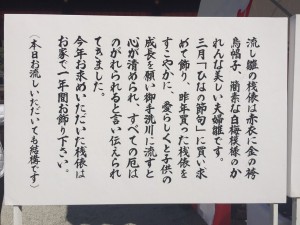 流し雛の桟俵は赤衣に金の袴
烏帽子、簡素な白梅模様のか
れんな美しい夫婦雛です。
三月「ひなの節句」に買い求
めて飾り、昨年買った桟俵を
すこやかに、愛らしくと子供の
成長を願い御手洗川に流すと
心が清められ、すべての厄は
のがれられると言い伝えられ
てきました。
今年お求めいただいた桟俵は
お家で一年間お飾り下さい。
(本日お流しいただいても結構です)